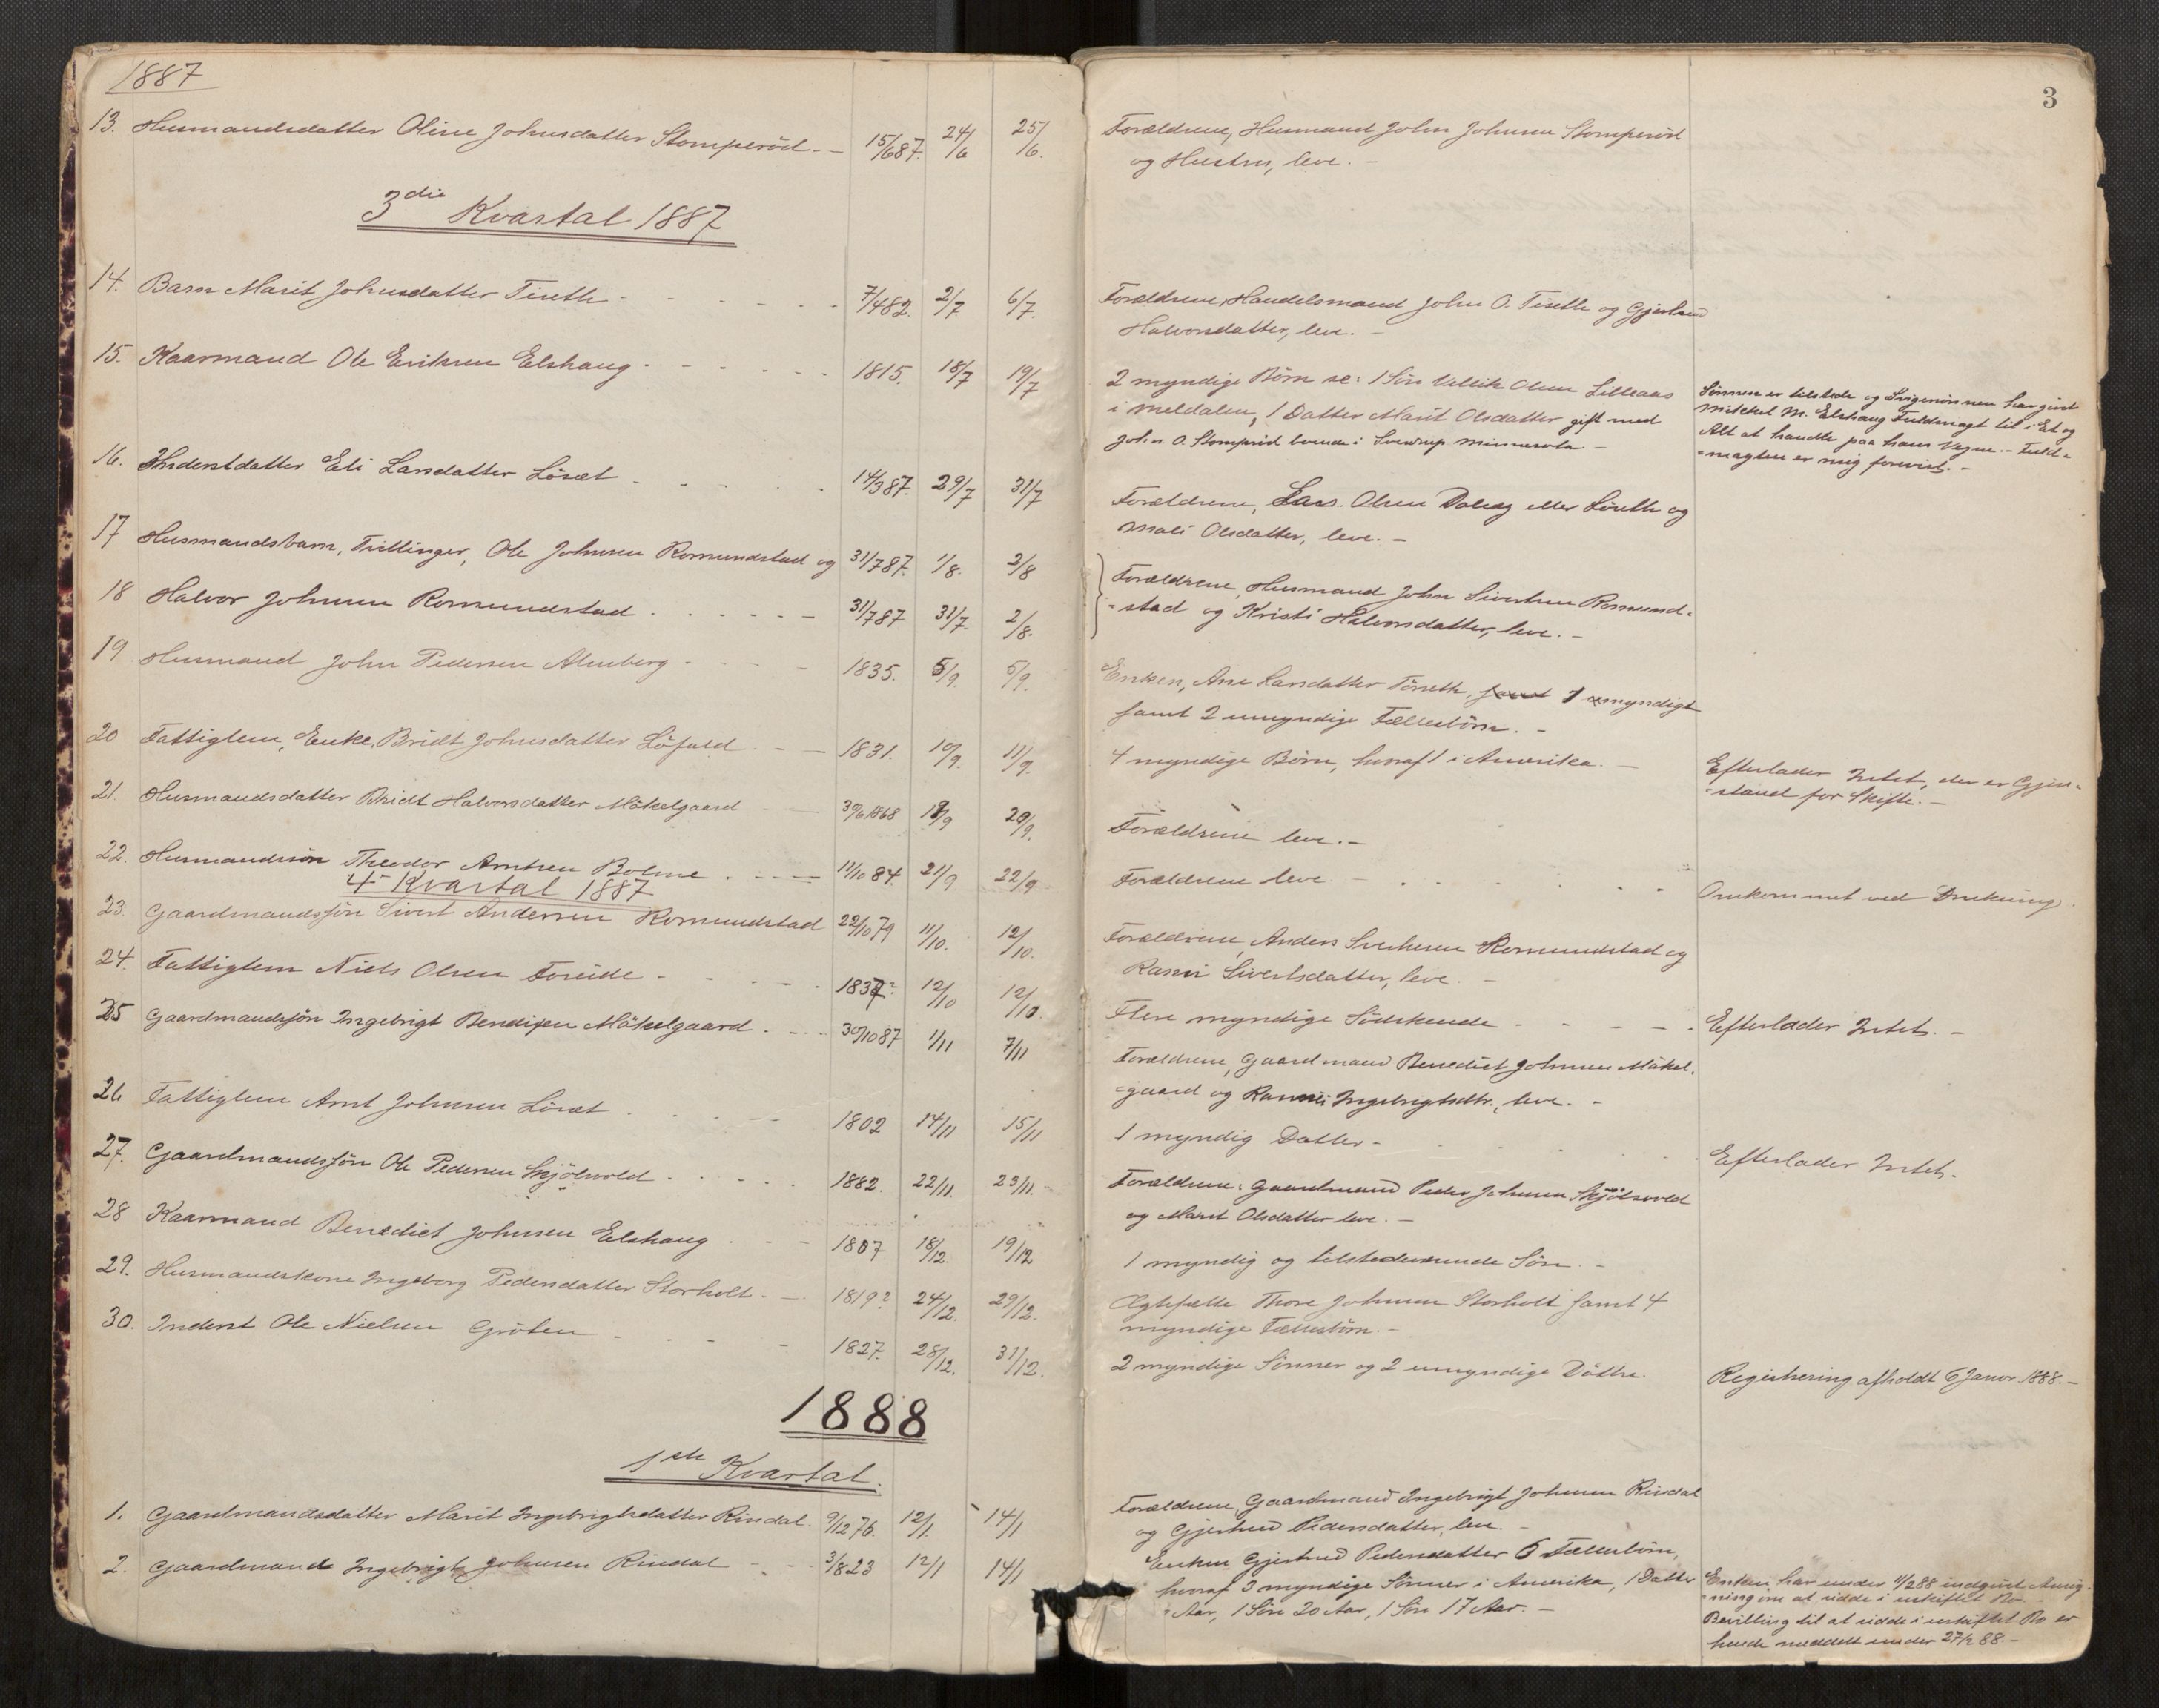 1887
13. Husmandsdatter Oline Johnsdatter Stomperöd - 15/6 87. 24/6 25/6.
3die Kvartal 1887
14. Barn Marit Johnsdatter Tiseth 7/4 82. 2/7 6/7.
15. Kaarmand Ole Eriksen Elshaug 1815. 18/7 19/7
16. Inderstdatter Eli Larsdatter Löset 14/3 87. 29/7 31/7
17 Husmandsbarn, Tvillinger, Ole Johnsen Romundstad og 31/7 87. 1/8. 2/8
18 Halvor Johnsen Romundstad 31/7 87 31/7 2/8.
19 Husmand John Pedersen Almberg 1835. 5/9. 5/9.
20 Fattiglem, Enke, Bridt Johnsdatter Löfald 1831. 10/9. 11/9.
21. Husmandsdatter Bridt Halvorsdatter Mökelgaard 30/6 1868 19/9 20/9.
22. Husmandssön Theodor Arntsen Bolme 11/10 84. 21/9 22/9
4de Kvartal 1887
23. Gaardmandssön Sivert Andersen Romundstad 22/10 79 11/10. 12/10.
24. Fattiglem Niels Olsen Foseide 1837? 12/10 12/10.
25 Gaardmandssön Ingebrigt Bendixen Mökelgaard 30/10 87 1/11 7/11
26 Fattiglem Arnt Johnsen Löset 1802 14/11 15/11
27. Gaardmandssön Ole Pedersen Skjölsvold 1882. 22/11. 23/11.
28 Kaarmand Benedict Johnsen Elshaug 1807 18/12. 19/12
29. Husmandskone Ingeborg Pedersdatter Storholt 1819? 24/12. 29/12.
30. Inderst Ole Nielsen Gröten 1827. 28/12. 31/12.
1888
1ste Kvartal.
1. Gaardmandsdatter Marit Ingebrigtsdatter Rindal. 9/12 76. 12/1. 14/1
2. Gaardmand Ingebrigt Johnsen Rindal 3/8 23 12/1 14/1
3
Forældrene, Husmand John Johnsen Stomperöd
og Hustru, leve. -
Forældrene, Handelsmand John O. Tiseth og Gjertrud
Halvorsdatter, leve. -
2 myndige Börn se: 1 Sön Olsen Lilleaas
i Meldalen, 1 Datter Marit Olsdatter gift med
John O. Stomperöd boende i Sverdrup Minnesota -
Sönnen er tilstede og Svigersönnen har givet
Mikkel M. Elshaug Fuldmagt til i Et og
Alt at handle paa hans Vegne. - Fuld-
-magten er mig forevist. -
Forældrene, Lars Olsen eller Löseth og
Mali Olsdatter, leve. -
Forældrene, Husmand John Sivertsen Romund-
-stad og Kristi Halvorsdatter, leve. -
Enken, Ane Larsdatter Töseth, samt 1 myndigt
samt 2 umyndige Fællesbörn. -
4 myndige Börn, hvoraf 1 i Amerika. -
Efterlader Intet, der er Gjen-
-stand for Skifte. -
Forældrene leve. -
Forældrene leve
Omkommet ved Drukning.
Forældrene, Anders Sivertsen Romundstad og
Sivertsdatter, leve. -
Flere myndige Södskende
Efterlader Intet. -
Forældrene, Gaardmand Benedict Johnsen Mökel-
-gaard og Ingebrigtsdtr., leve. -
1 myndig Datter -
Efterlader Intet.
Forældrene: Gaardmand Peder Johnsen Skjölsvold
og Marit Olsdatter leve. -
1 myndig og tilstedeværende Sön. -
Ægtefælle Thore Johnsen Storholt samt 4
myndige Fællesbörn. -
2 myndige Sönner og 2 umyndige Döttre.
Registrering afholdt 6 Januar 1888. -
Forældrene, Gaardmand Ingebrigt Johnsen Rindal
og Gjertrud Pedersdatter, leve. -
Enken Gjertrud Pedersdatter 6 Fællesbörn,
hvoraf 3 myndige Sönner i Amerika, 1 Datter
Aar, 1 Sön 20 Aar, 1 Sön 17 Aar. -
Enken har under 11/2 88 indgivet Ansög-
-ning om at sidde i uskiftet Bo. -
Bevilling til at sidde i uskiftet Bo er
hende meddelt under 27/2 88. -